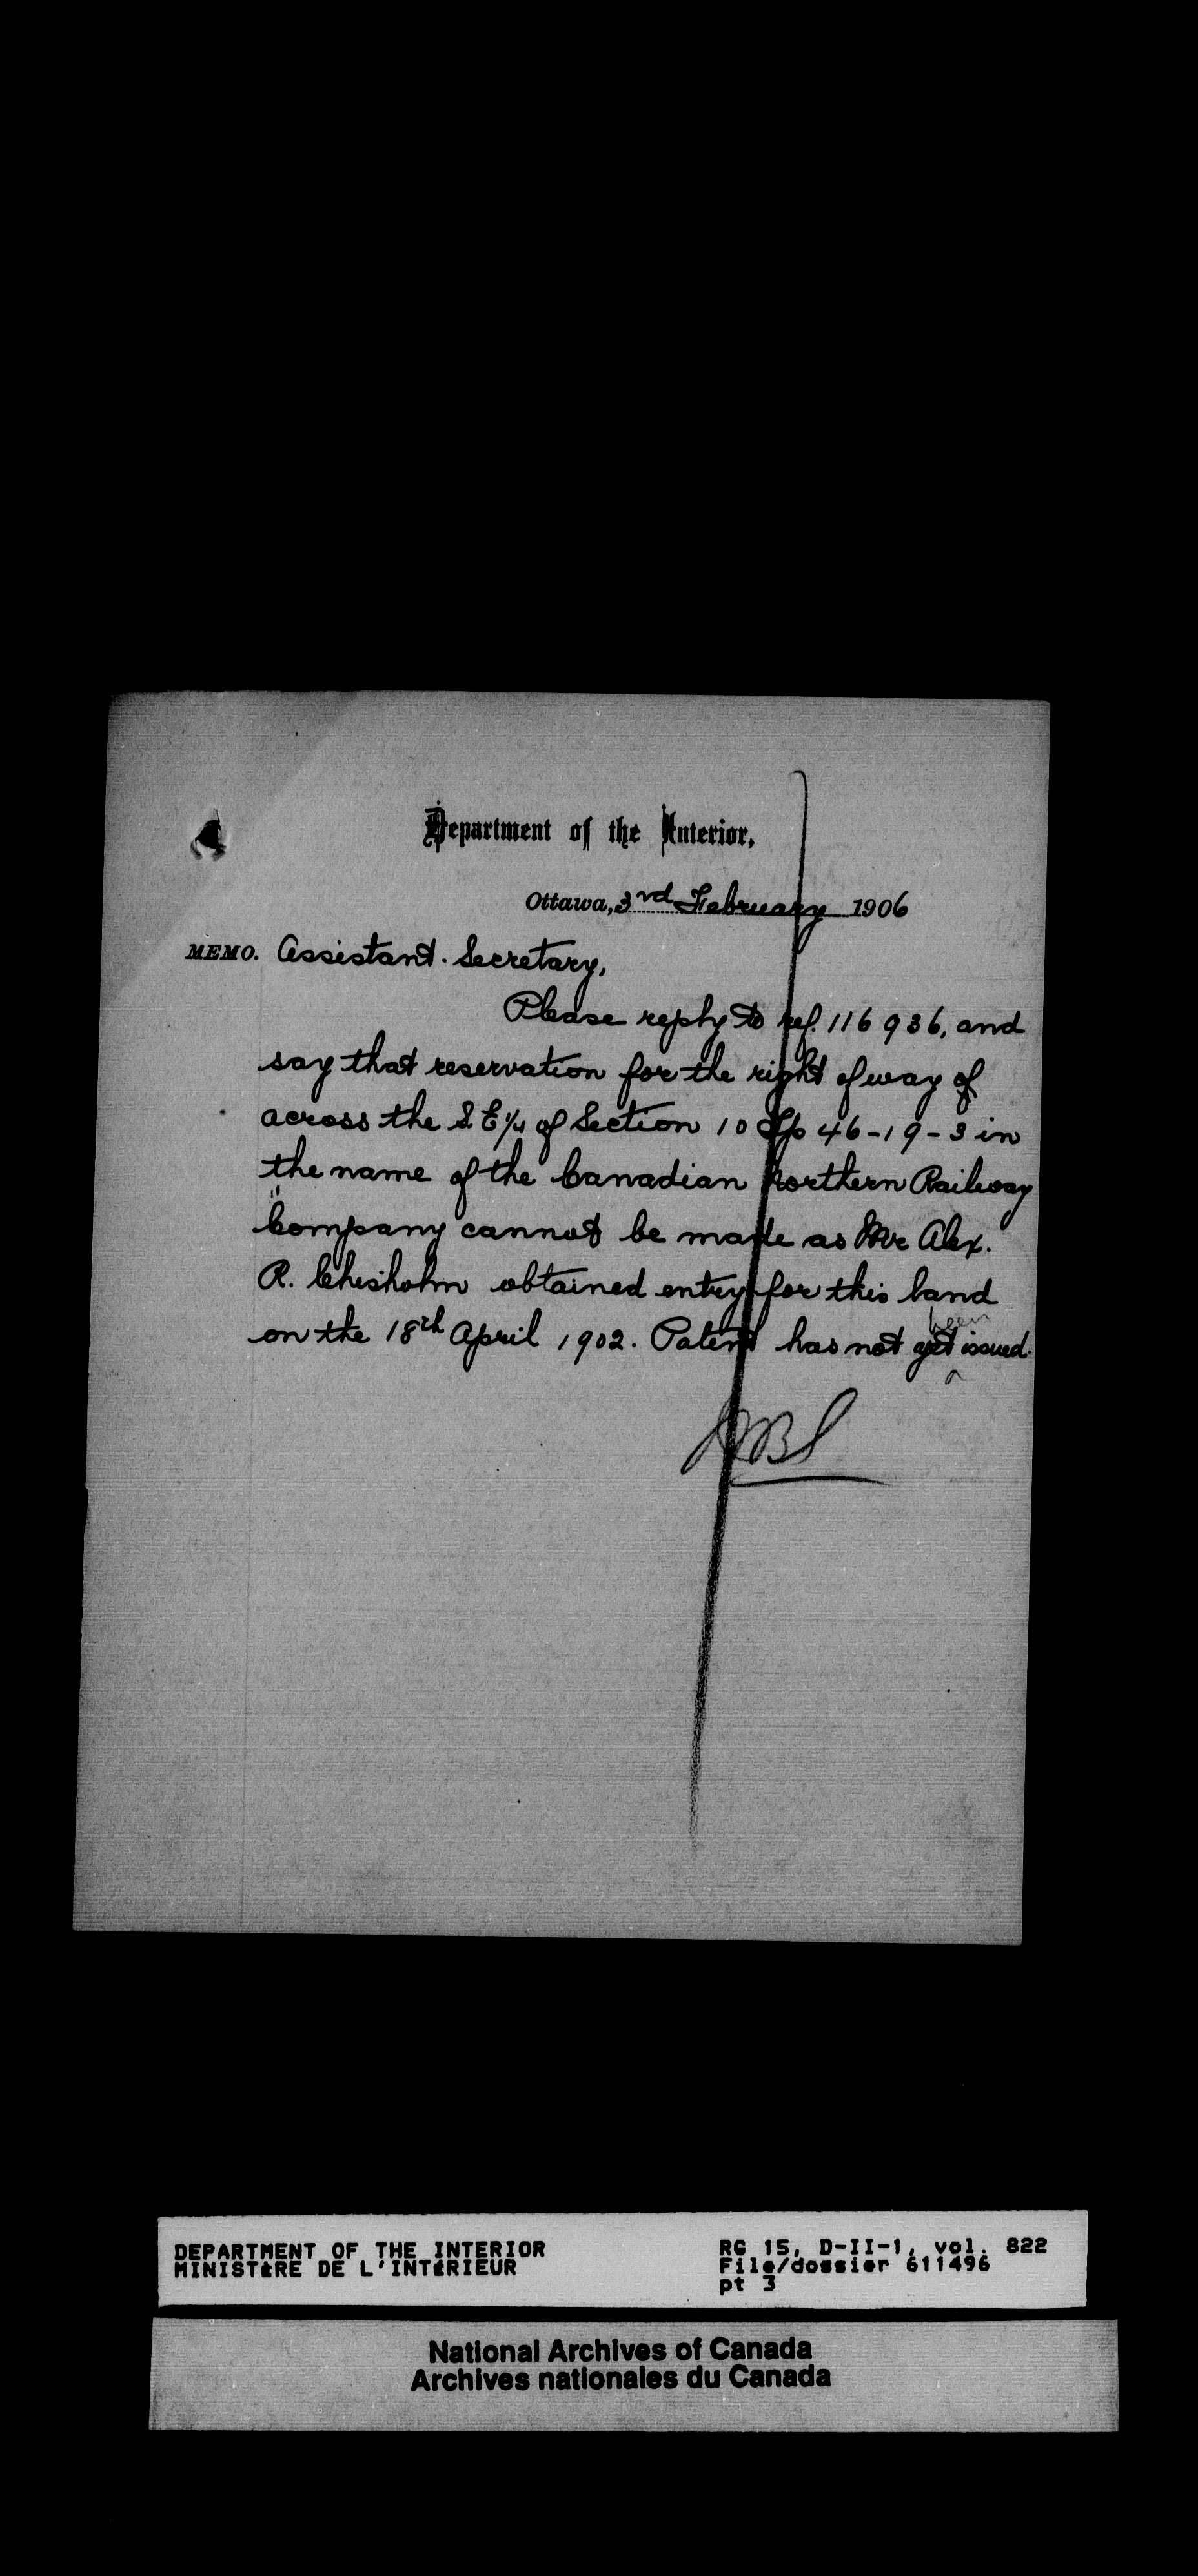 Department of the Interior,
Ottawa, 3rd February 1906
MEMO. Assistant Secretary,
Please reply to ref. 116936, and
say that reservation for the right of way of
across the S.E 1/4 of Section 10 Tp 46-19-3 in
the name of the Canadian Northern Railway
Company cannot be made as Mr Alex.
R. Chisholm obtained entry for this land
on the 18th April 1902. Patent has not yet been issued.
DEPARTMENT OF THE INTERIOR
MINISTÈRE DE L'INTÉRIEUR
RG 15, D-II-1, vol. 822
File/dossier 611496
pt 3
National Archives of Canada
Archives nationales du Canada